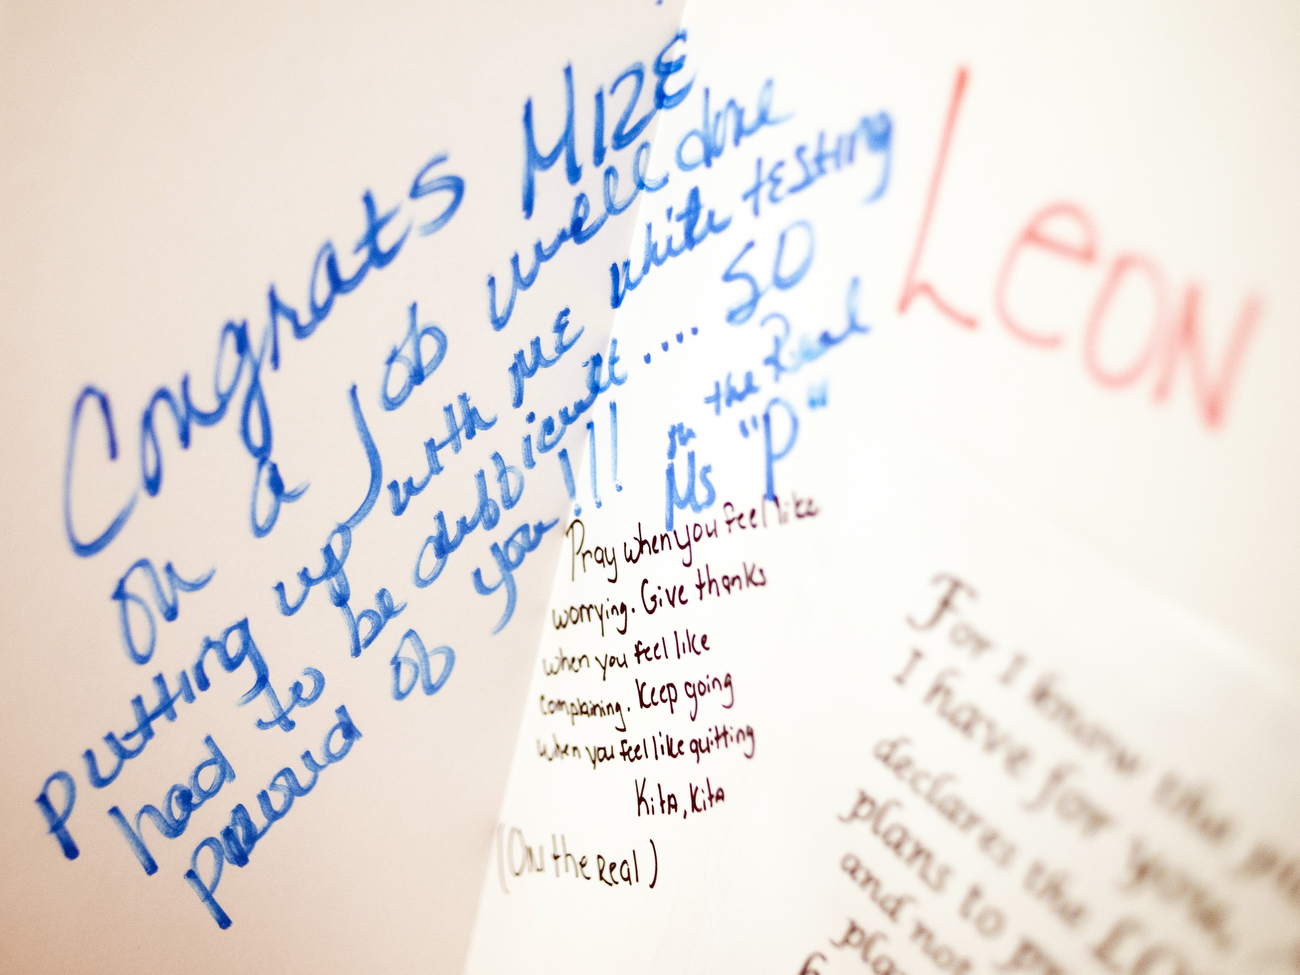 Congrats MIZE
on a Job well done
putting up with me while testing
had to be difficult .... SO
proud of you!!!
on the Real
Ms "P"
Leon
Pray when you feel like
worrying. Give thanks
when you feel like
complaining. Keep going
when you feel like quitting
Kita, Kita
(On the Real)
For I know the
I have for you,
declares the LO
plans to
and not